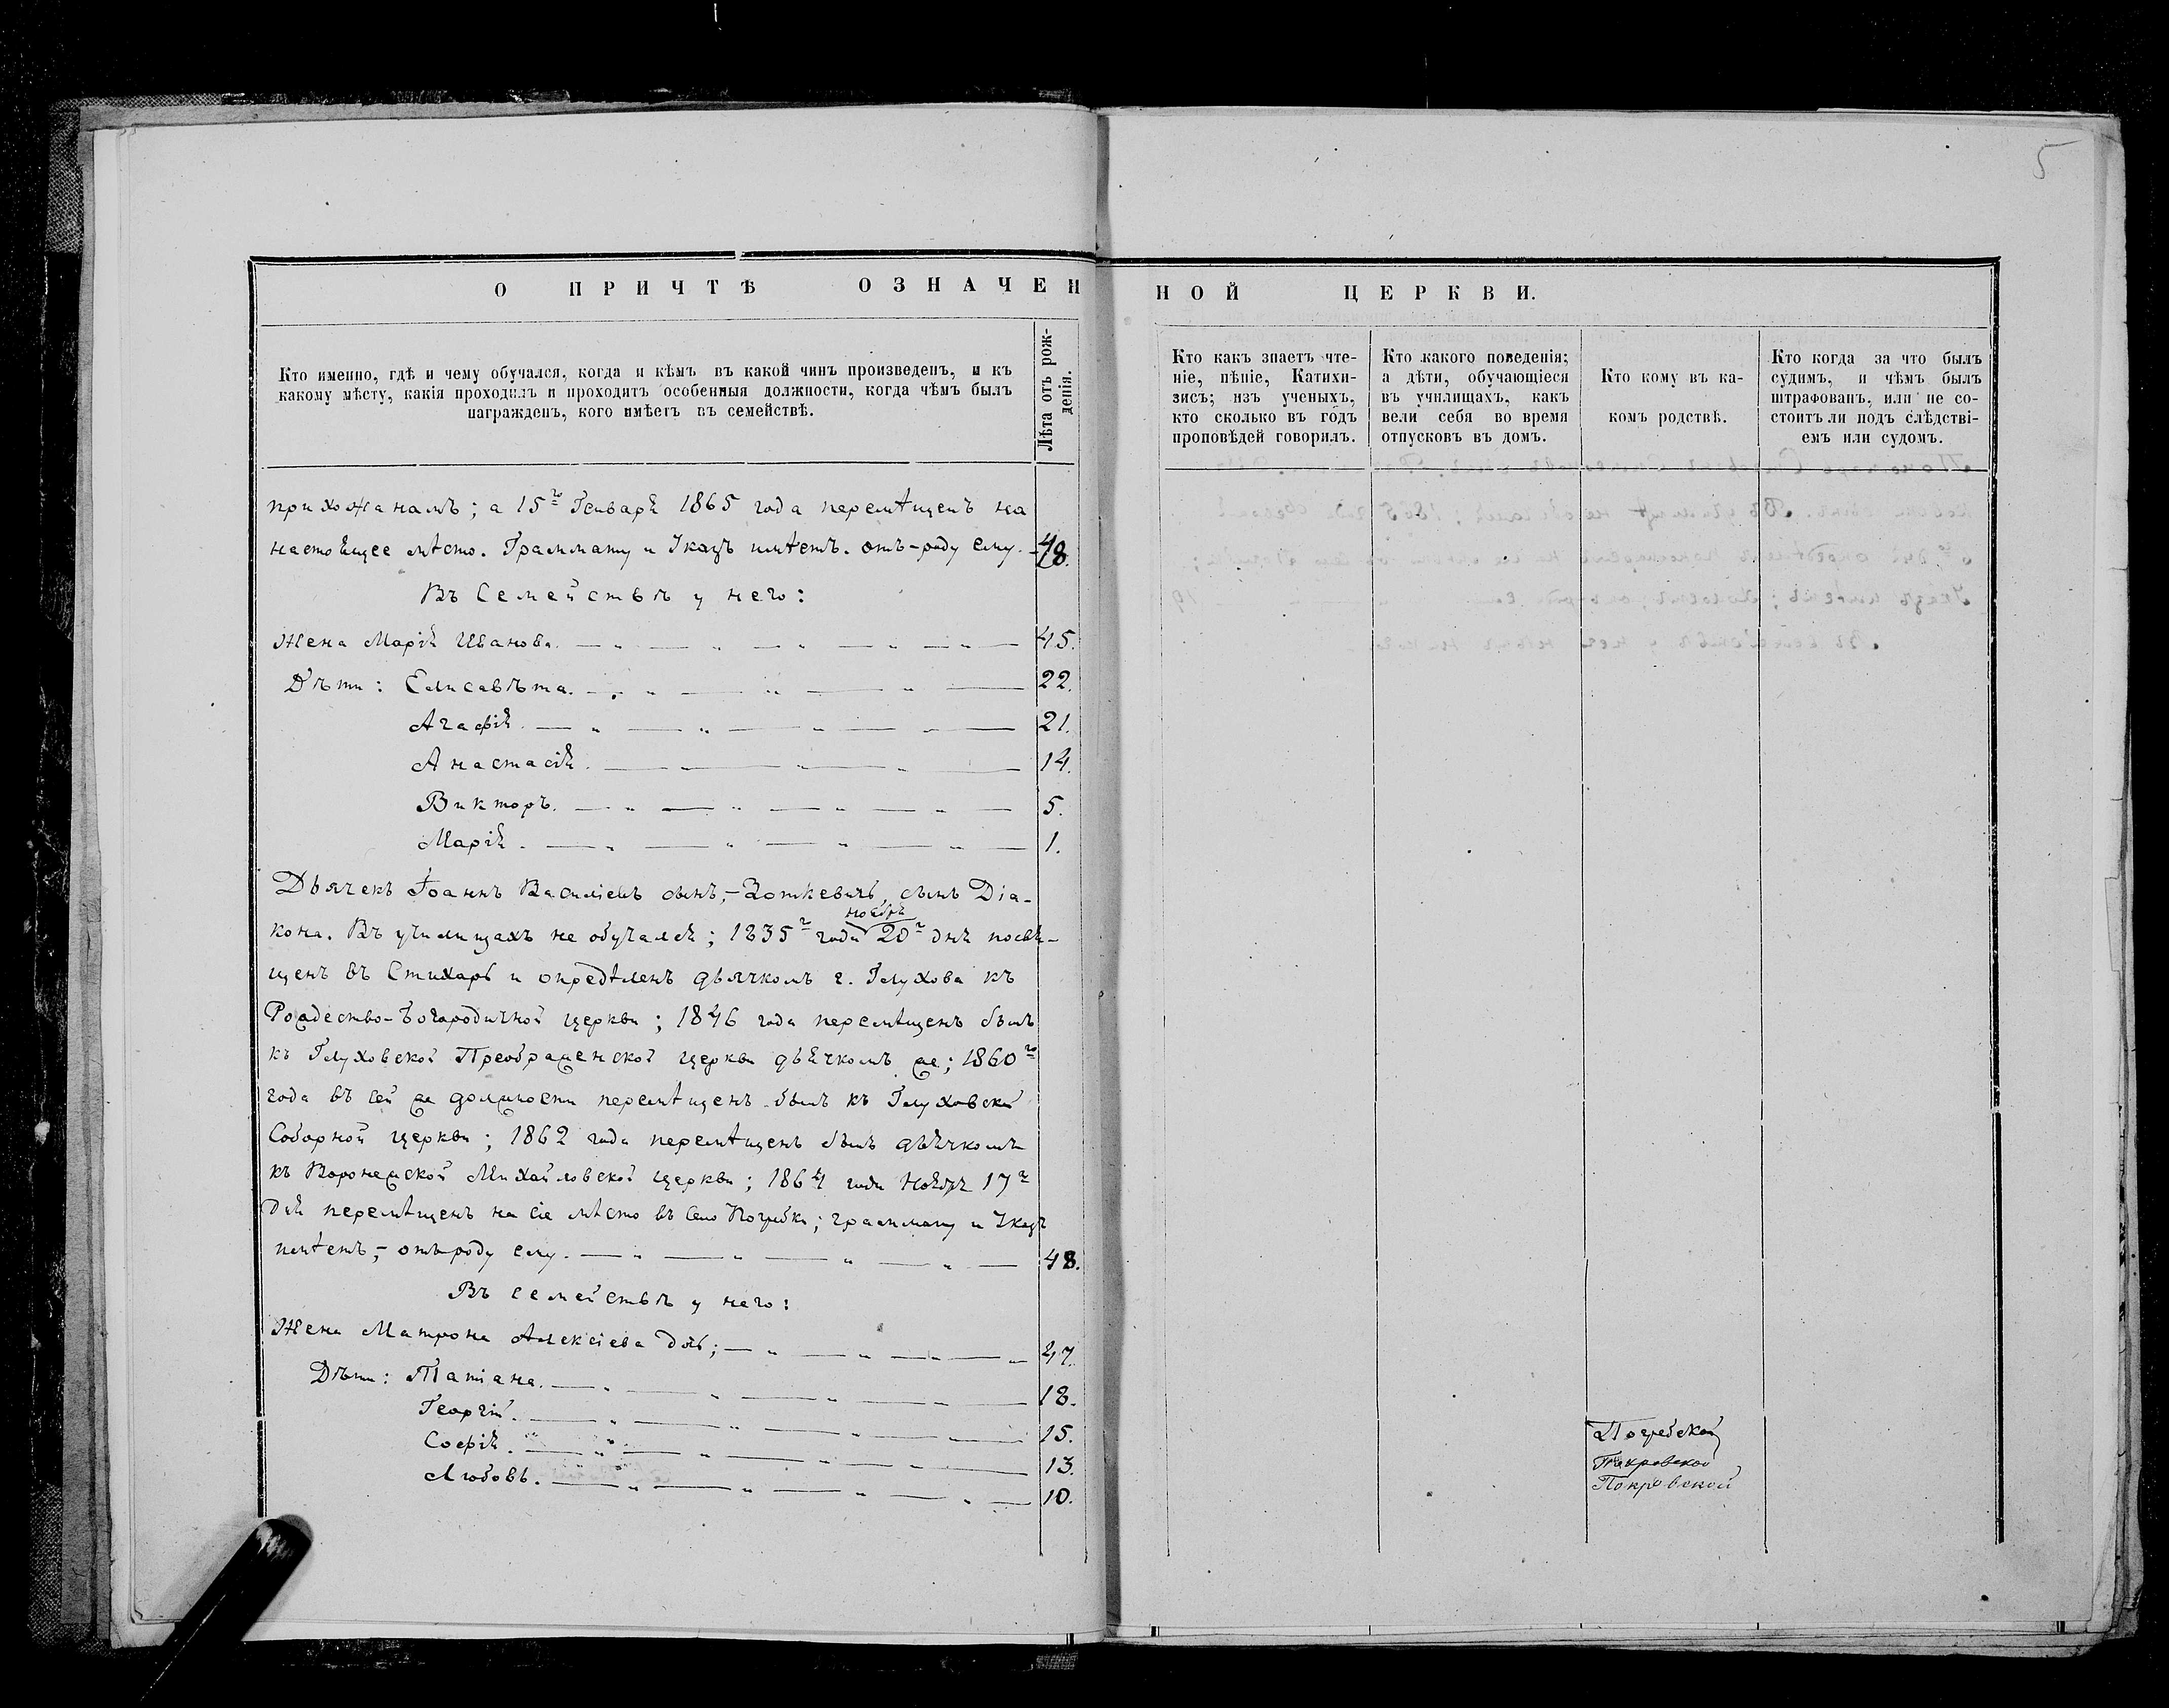 5
О ПРИЧТѢ ОЗНАЧЕН
НОЙ ЦЕРКВИ.
Кто именно, гдѣ и чему обучался, когда и кѣмъ въ какой чинъ произведенъ, и къ
какому мѣсту, какія проходилъ и проходитъ особенныя должности, когда чѣмъ былъ
награжденъ, кого имѣетъ въ семействѣ.
Лѣта отъ рож-
денія.
Кто какъ знаетъ чте-
ніе, пѣніе, Катихи-
зисъ; изъ ученыхъ,
кто сколько въ годъ
проповѣдей говорилъ.
Кто какого поведенія;
а дѣти, обучающіеся
въ училищахъ, какъ
вели себя во время
отпусковъ въ домъ.
Кто кому въ ка-
комъ родствѣ.
Кто когда за что былъ
судимъ, и чѣмъ былъ
штрафованъ, или не со-
стоитъ ли подъ слѣдстві-
емъ или судомъ.
прихожанамъ; а 15го Генваря 1865 года перемѣщенъ на
настоящее мѣсто. Граммату и Указъ имѣетъ. отъ-роду ему. 48.
Въ Семействѣ у него:
Жена Марія Иванова. 45.
Дѣти: Елисавѣта. 22.
Агафія. 21.
Анастасія. 14.
Викторъ. 5.
Марія. 1.
Дьячекъ Іоаннъ Василіевъ сынъ,- Зоткевичъ, сынъ Діа-
кона. Въ училищахъ не обучался; 1835го года ноября 20го дня посвя-
щенъ въ Стихарь и опредѣленъ дьячкомъ г. Глухова къ
Рождество-Богородичной церкви; 1846 года перемѣщенъ былъ
къ Глуховской Преображенской церкви дьячкомъ же; 1860го
года въ сей же должности перемѣщенъ былъ къ Глуховской
Соборной церкви; 1862 года перемѣщенъ былъ дьячкомъ
къ Воронежской Михайловской церкви; 1864 года Ноября 17го
дня перемѣщенъ на сіе мѣсто въ Село Погребки; граммату и Указъ
имѣетъ,- отъ-роду ему. 48.
Въ семействѣ у него:
Жена Матрона Алексіева дчь; 47.
Дѣти: Татіана. 18.
Георгій. 15.
Софія. 13.
Любовь. 10.
Погребской
Покровской
Покровской